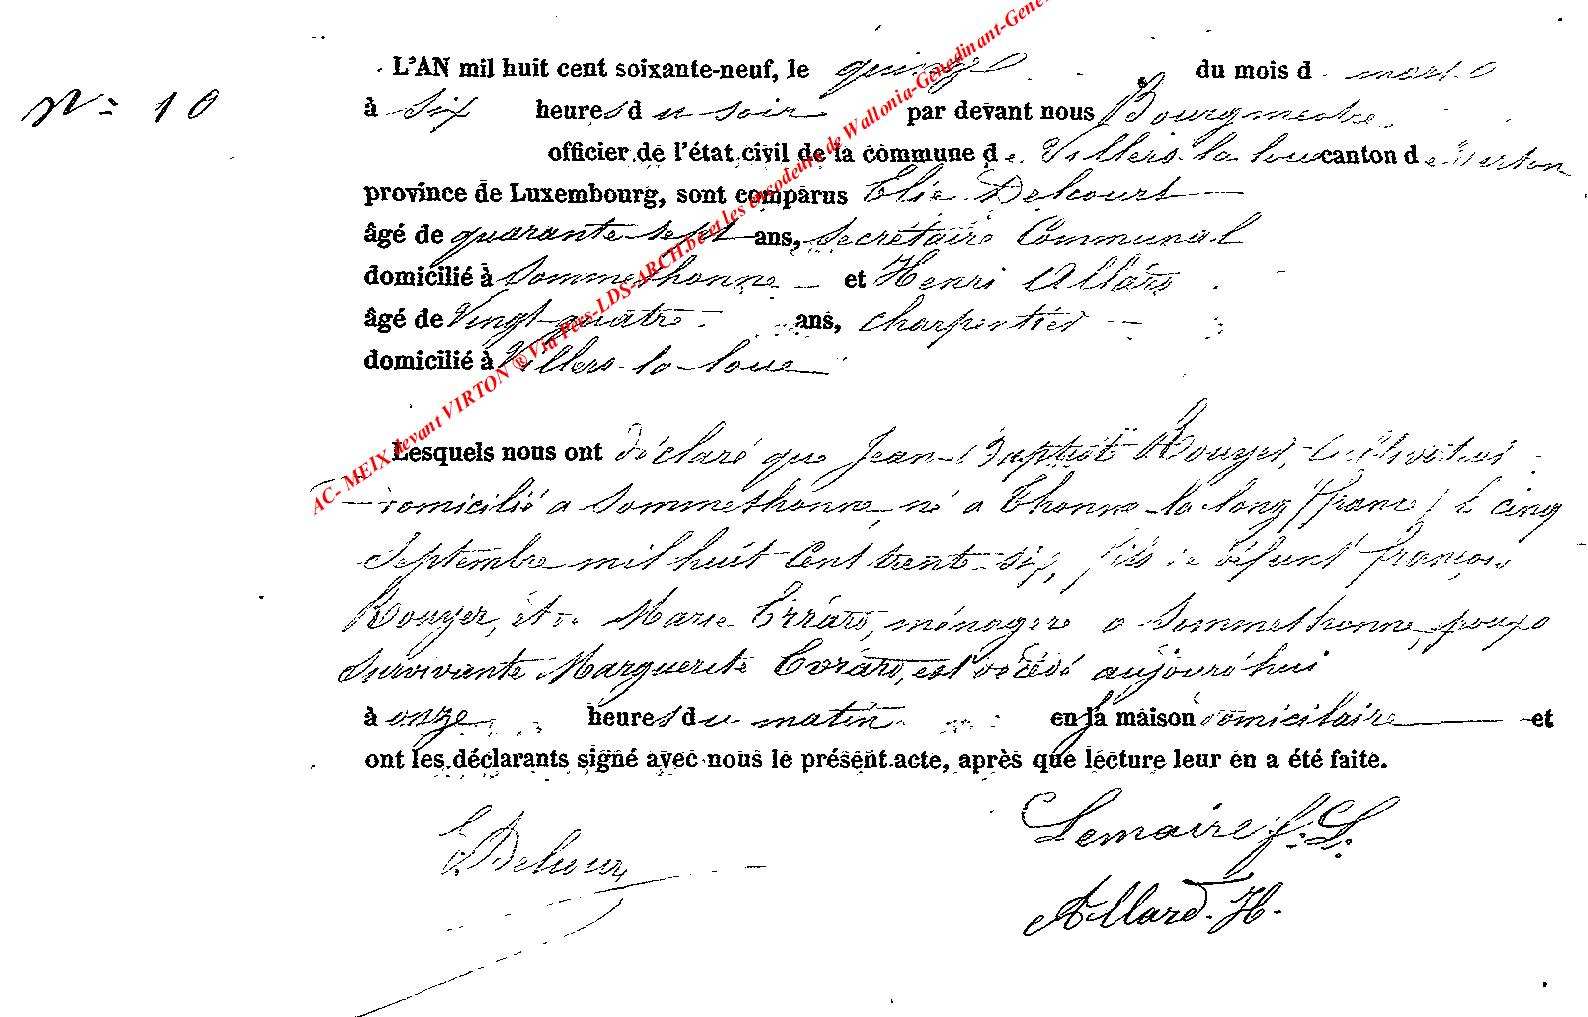 L'AN mil huit cent soixante-neuf, le quinze du mois d mars
N° 10
à Six heures du soir par devant nous Bourgmestre
officier de l'état civil de la commune de Villers-la-loue canton de Virton
province de Luxembourg, sont comparus Elie Delcourt
âgé de quarante-sept ans, Secrétaire Communal
domicilié à Sommethonne et Henri Allard
âgé de Vingt-quatre ans, charpentier
domicilié à Villers-la-loue
Lesquels nous ont déclaré que Jean-Baptiste Rouyer, Cultivateur
domicilié a Sommethonne, né a Thonne-la-long (france) le cinq
Septembre mil huit Cent trente-six, fils de défunt françois
Rouyer, et de Marie Errard, ménagère a Sommethonne, époux
survivante Marguerite Evrard, est décédé aujourd'hui
à onze heures du matin en la maison domicilaire et
ont les déclarants signé avec nous le présent acte, après que lecture leur en a été faite.
Lemaire f. L.
E. Delcour
Allard. H.
AC- MEIX devant VIRTON ® Via Pers-LDS-ARCH.be et les encodeurs de Wallonia-Genedinant-Gene